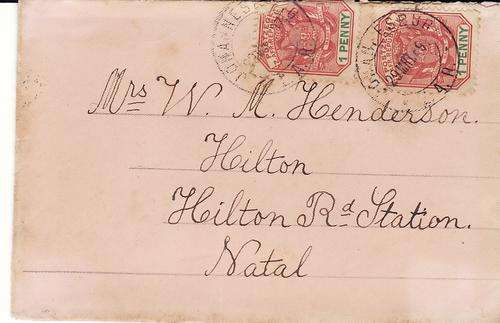 JOHANNESBURG
1 PENNY
1 PENNY
Z.A.R.
Mrs W. M. Henderson.
Hilton
Hilton Rd Station.
Natal